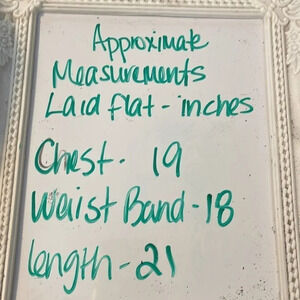 Approximate
Measurements
Laid flat - inches
Chest - 19
Waist Band - 18
length - 21